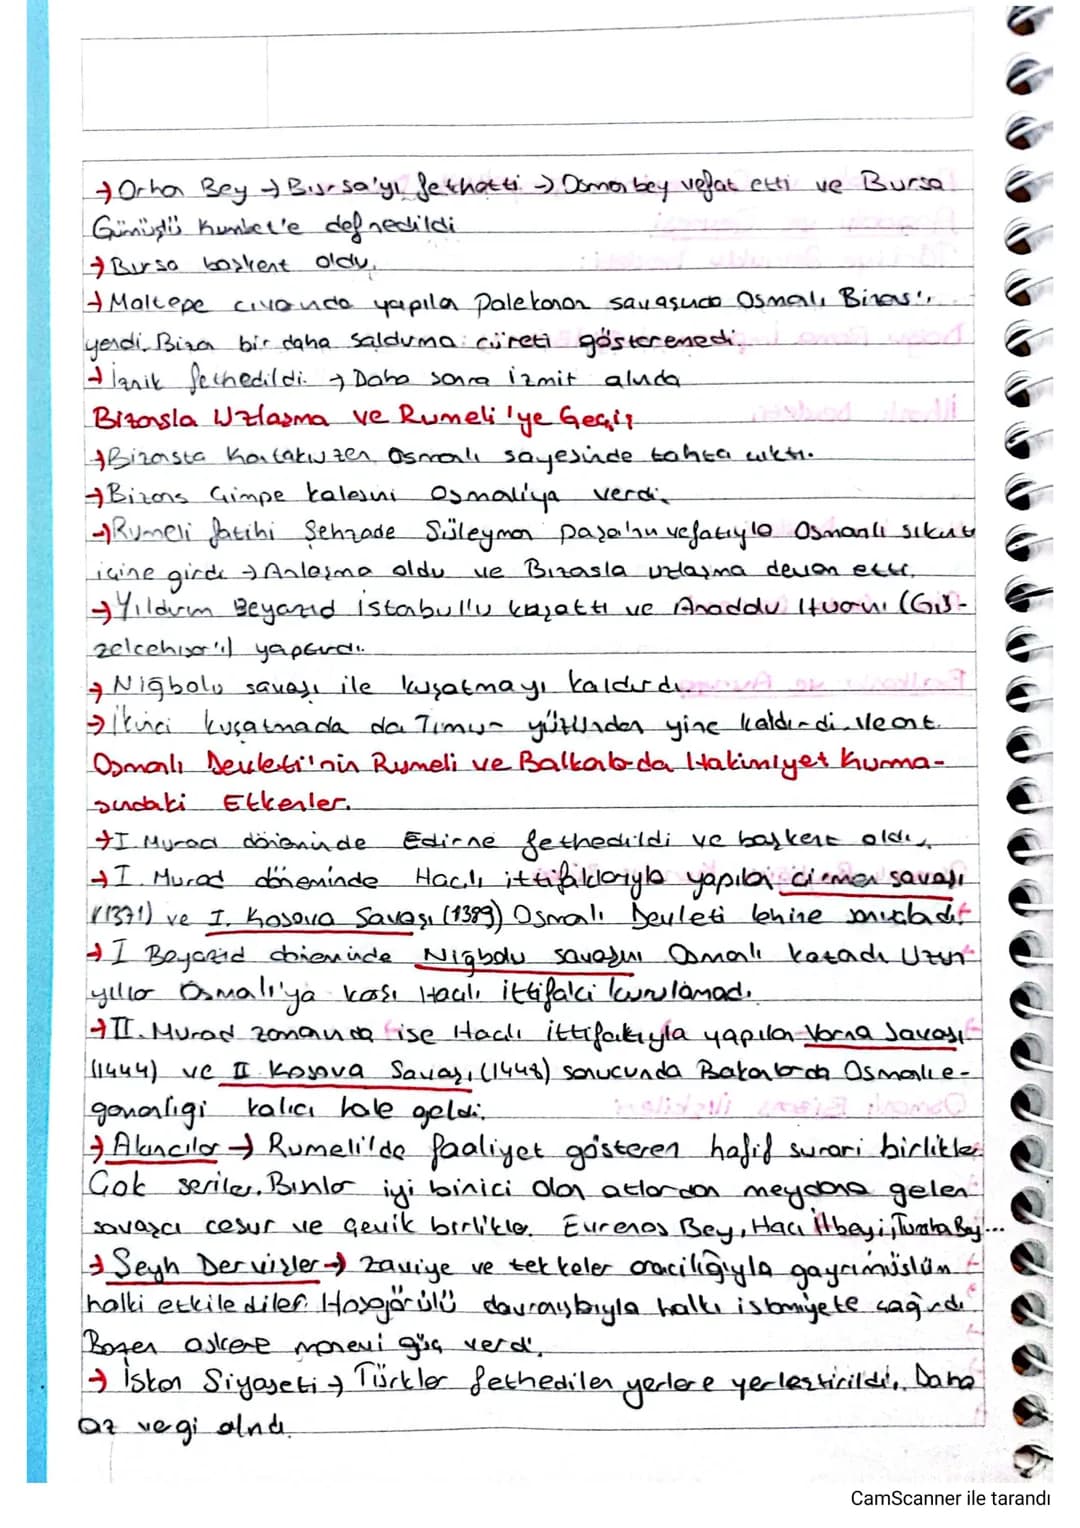 →Orhan Bey → Bursa'yı fethetti → Osman bey vefat etti ve Bursa
Gümüşlü Kümbet'e defnedildi
→Bursa başkent oldu.
→Maltepe civarında yapılan Palekanon savaşında Osmanlı Bizans'ı
yendi. Bizan bir daha saldırma cüreti gösteremedi
→İznik fethedildi. → Daha sonra İzmit alındı
Bizansla Uzlaşma ve Rumeli'ye Geçiş
→Bizansta Kantakuzen Osmanlı sayesinde tahta çıktı.
→Bizans Çimpe kalesini Osmanlı'ya verdi.
→Rumeli fatihi Şehzade Süleyman paşa'nın vefatıyla Osmanlı sıkıntı
içine girdi → Anlaşma oldu ve Bizasla uzlaşma devam etti.
→Yıldırım Beyazıd İstanbul'u kuşattı ve Anadolu Hisarını (Gü-
zelcehisar'ı) yaptırdı.
→ Niğbolu savaşı ile kuşatmayı kaldırdı
→İkinci kuşatmada da Timur yüzünden yine kaldırdı
Osmanlı Devleti'nin Rumeli ve Balkanlarda Hakimiyet Kurma-
sındaki Etkenler.
→I. Murad döneminde Edirne fethedildi ve başkent oldu.
→I. Murad döneminde Haçlı ittifaklarıyla yapılan Çirmen savaşı
(1371) ve I. Kosova Savaşı (1389) Osmanlı Devleti lehine sonuçlandı
→I Beyazıd döneminde Niğbolu savaşını Osmanlı kazandı Uzun
yıllar Osmanlı'ya karşı Haçlı ittifakı kurulamadı.
→II. Murad zamanında ise Haclı ittifakıyla yapılan Varna Savaşı
(1444) ve II Kosova Savaşı (1448) sonucunda Balkanlarda Osmanlı e-
gemenliği kalıcı hale geldi.
→Akıncılar → Rumeli'de faaliyet gösteren hafif süvari birlikler
Çok seriler. Bunlar iyi binici olan atlardan meydana gelen
savaşçı cesur ve çevik birlikler. Evrenos Bey, Hacı İlbeyi, Turahan Bey...
→Şeyh Dervişler → zaviye ve tekkeler aracılığıyla gayrimüslüm
halkı etkilediler. Hoşgörülü davranışlarıyla halkı islamiyete çağırdı
Bazen askere manevi güç verdi.
→ İskan Siyaseti → Türkler fethedilen yerlere yerleştirildi. Daha
az vergi alındı.
CamScanner ile tarandı